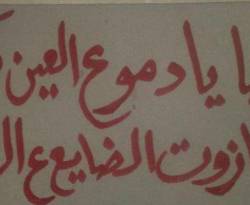 يا دموع العين
الضايع ع ال